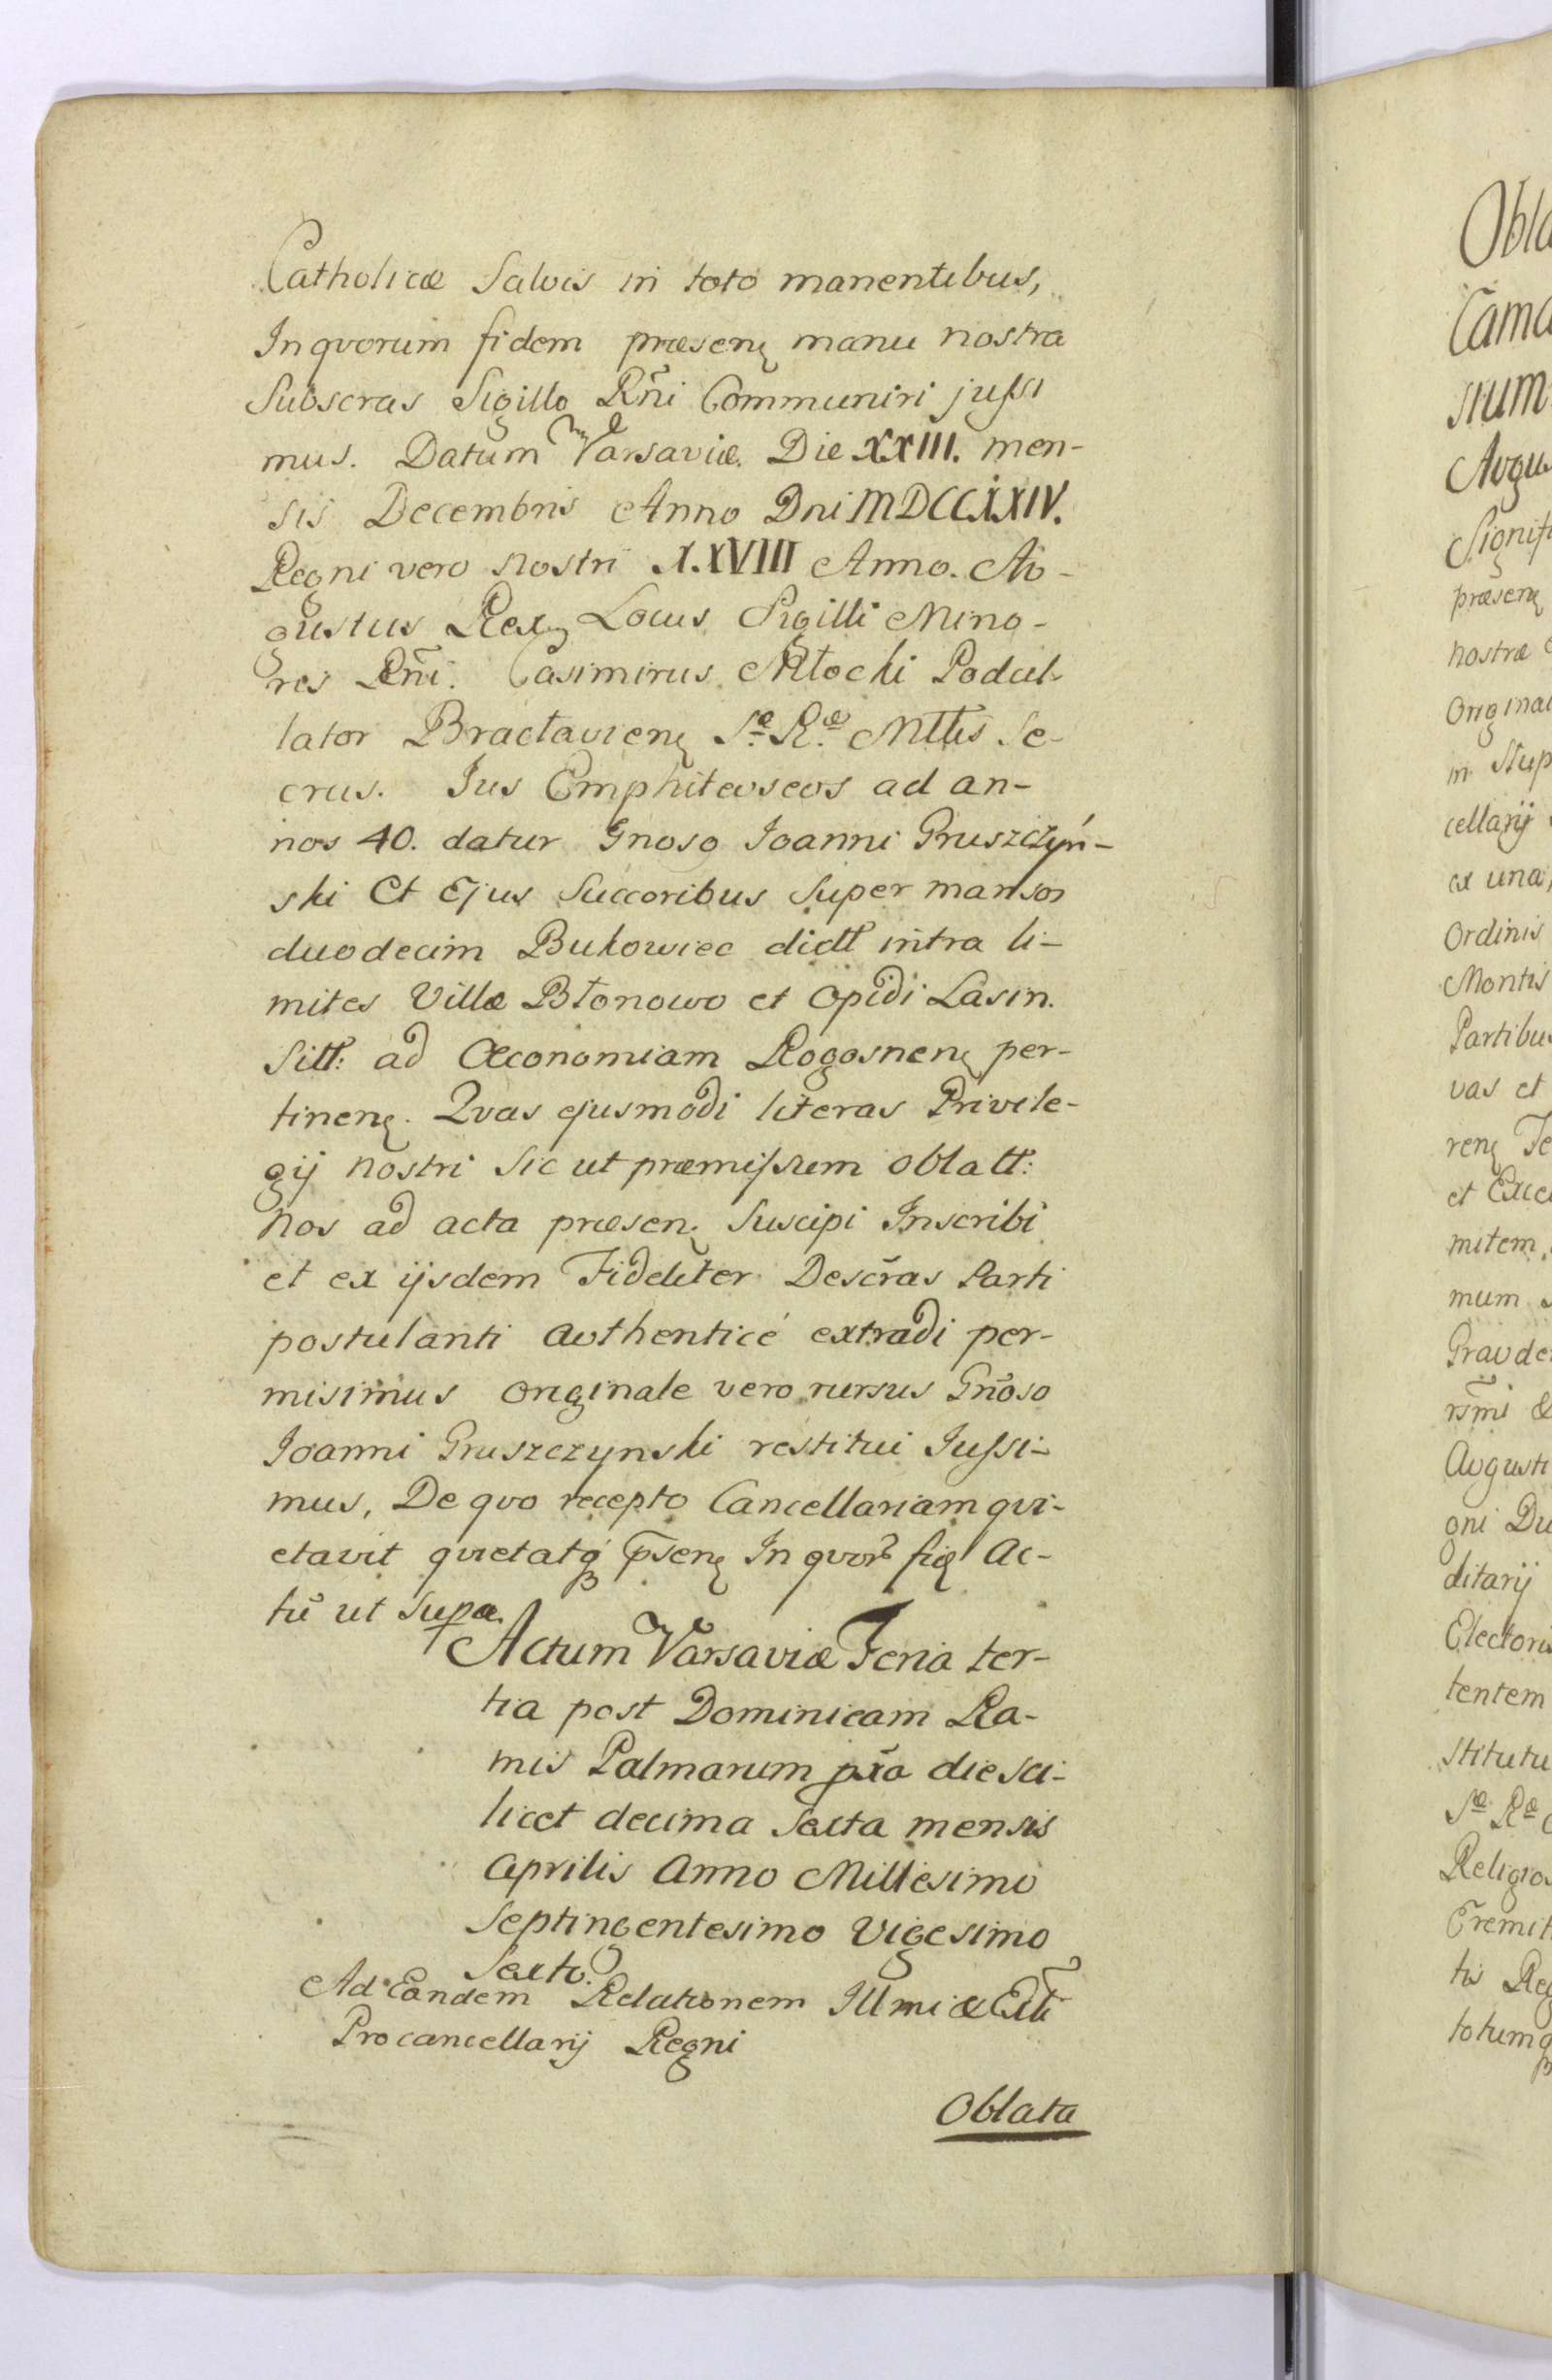 Catholicæ Salvis in toto manentibus,
In qvorum fidem præsenț manu nostra
Subscras Sigillo Rñi Communiri jussi
mus. Datum Varsaviæ. Die XXIII. men-
sis Decembris Anno Dni MDCCXXIV.
Regni vero nostri XXVIII Anno. Au-
gustus Rex, Locus Sigilli Mino-
ris Rñi. Casimirus Młocki Podcul-
tator Bractavienț Sæ Ræ Mttis Se-
crus. Jus Emphitevseos ad an-
nos 40. datur Gnoso Joanni Gruszczyń-
ski Et Ejus Succoribus Super mansos
duodecim Bukowiec dictt intra li-
mites Villæ Błonowo et Opidi Lasin.
Sitt: ad Œconomiam Rogosnenț per-
tinenț. Qvas ejusmodi literas Privile-
gij nostri Sic ut præmissum oblatt:
Nos ad acta præsenț Suscipi Inscribi
et ex ijsdem Fideliter Descr̃as Parti
postulanti avthenticé extradi per-
misimus originale vero rursus Gñoso
Joanni Gruszczynski restitui Jussi-
mus, De qvo recepto Cancellariam qvi-
etavit qvietatq p̃senț In qvor fid Ac-
tũ ut Supa.
Actum Varsaviæ Feria ter-
tia post Dominicam Ra-
mis Palmarum pxa die sci-
licet decima Sexta mensis
Aprilis Anno Millesimo
Septingentesimo Vigesimo
Sexto.
Ad Eandem Relationem Illmi &
Procancellarij Regni
Oblata
Obla
Cama
sium
Avgu
Signifi
præsenț
nostræ
Original
in Stup
cellarij
ex una,
Ordinis
Montis
Partibus
vas et
renț Te
et Exce
mitem,
mum
Gravde
rsm̃i &
Avgusti
gni Du
ditarij
Electoris
tentem
stitutu
Sæ Ræ
Religios
Eremit
tis Reg
totumq